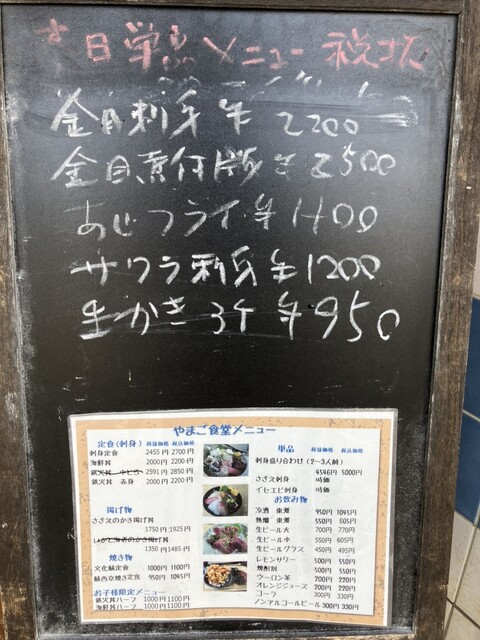 本日単品メニュー 税込
金目刺身 ¥2200
金目煮付 ¥2500
あじフライ ¥1400
サワラ刺身 ¥1200
生かき 3ケ ¥950
やまご食堂メニュー
定食(刺身) 税抜価格 税込価格
刺身定食 2455円 2700円
海鮮丼 2000円 2200円
鉄火丼 中とろ 2591円 2850円
鉄火丼 赤身 2000円 2200円
揚げ物
さざえのかき揚げ丼
1750円 1925円
いかと海老のかき揚げ丼
1350円 1485円
焼き物
文化鯖定食 1000円 1100円
鯖西京焼き定食 950円 1045円
お子様限定メニュー
鉄火丼ハーフ 1000円 1100円
海鮮丼ハーフ 1000円 1100円
単品 税抜価格 税込価格
刺身盛り合わせ(2~3人前)
4546円 5000円
さざえ刺身 時価
イセエビ刺身 時価
お飲み物
冷酒 東灘 950円 1045円
熱燗 東灘 550円 605円
生ビール大 700円 770円
生ビール中 550円 605円
生ビールグラス 450円 495円
レモンサワー 500円 550円
焼酎割 500円 550円
ウーロン茶 200円 220円
オレンジジュース 200円 220円
コーラ 300円 330円
ノンアルコールビール 300円 330円